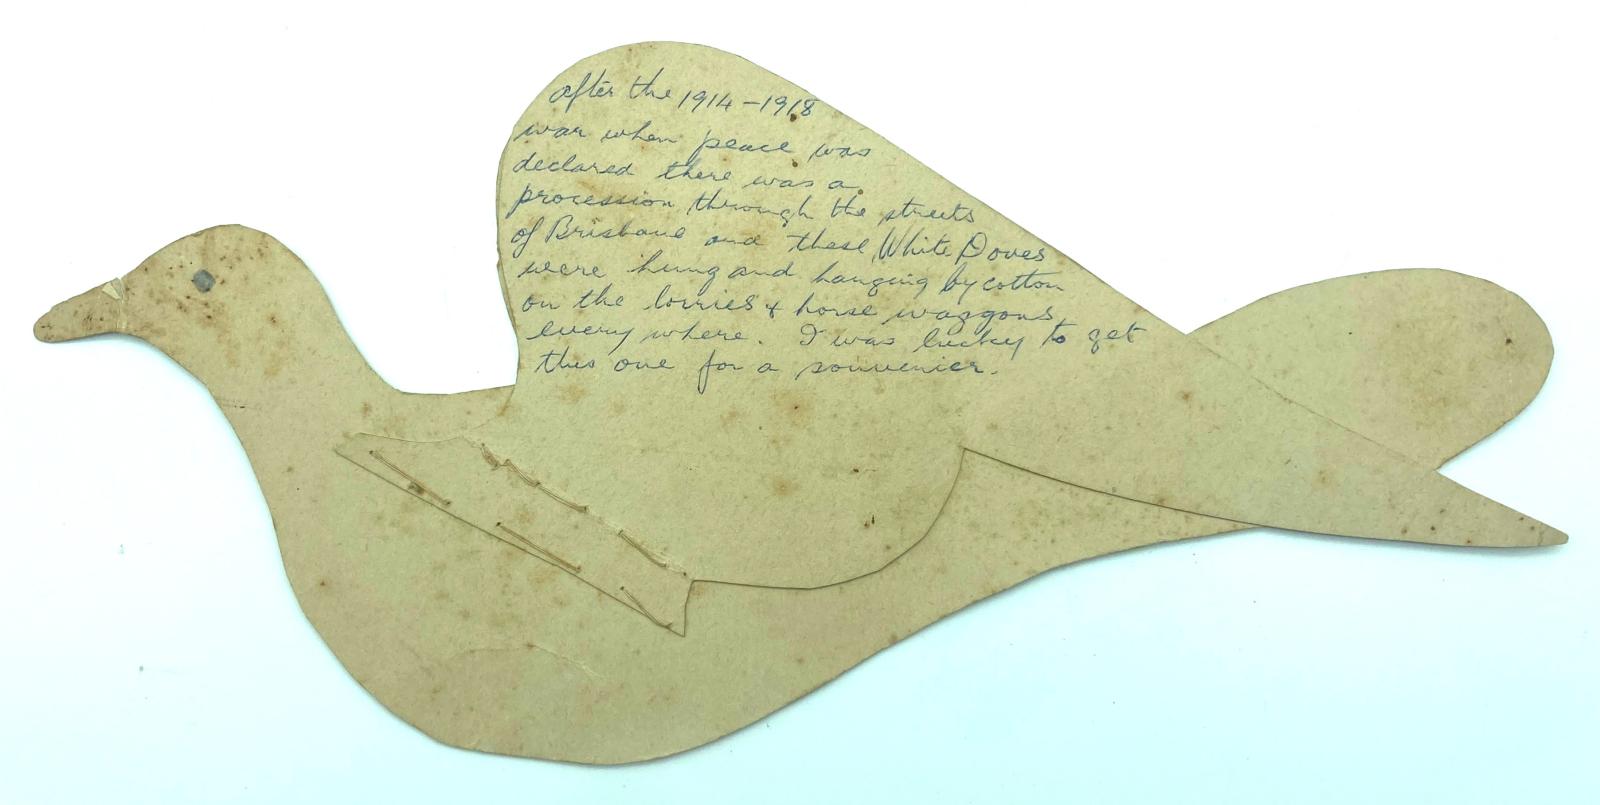 after the 1914-1918
war when peace was
declared there was a
procession through the streets
of Brisbane and these White Doves
were hung and hanging by cotton
on the lorries & horse waggons
every where. I was lucky to get
this one for a souvenier.